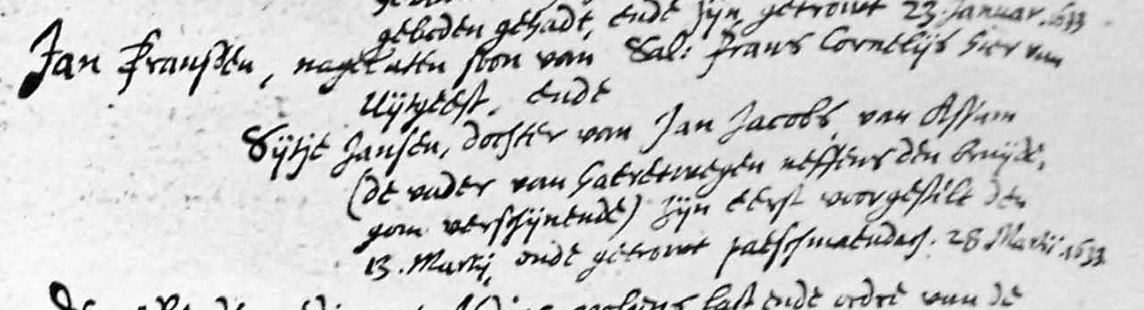 geboden gehadt, ende zijn getrout 23 Januar. 1633
Jan Franssen, nagelaten soon van Sal: Frans Cornelijs Sier van
Uijtgeest, ende
Sijtje Jansen, dochter van Jan Jacobs van Assum
(de vader van haerentwegen neffens den bruijde,
gom verschijnende) zijn eerst voorgestelt den
13. Martij, ende getrout paeschmaendach. 28 Martij 1633
last ende ordre van de